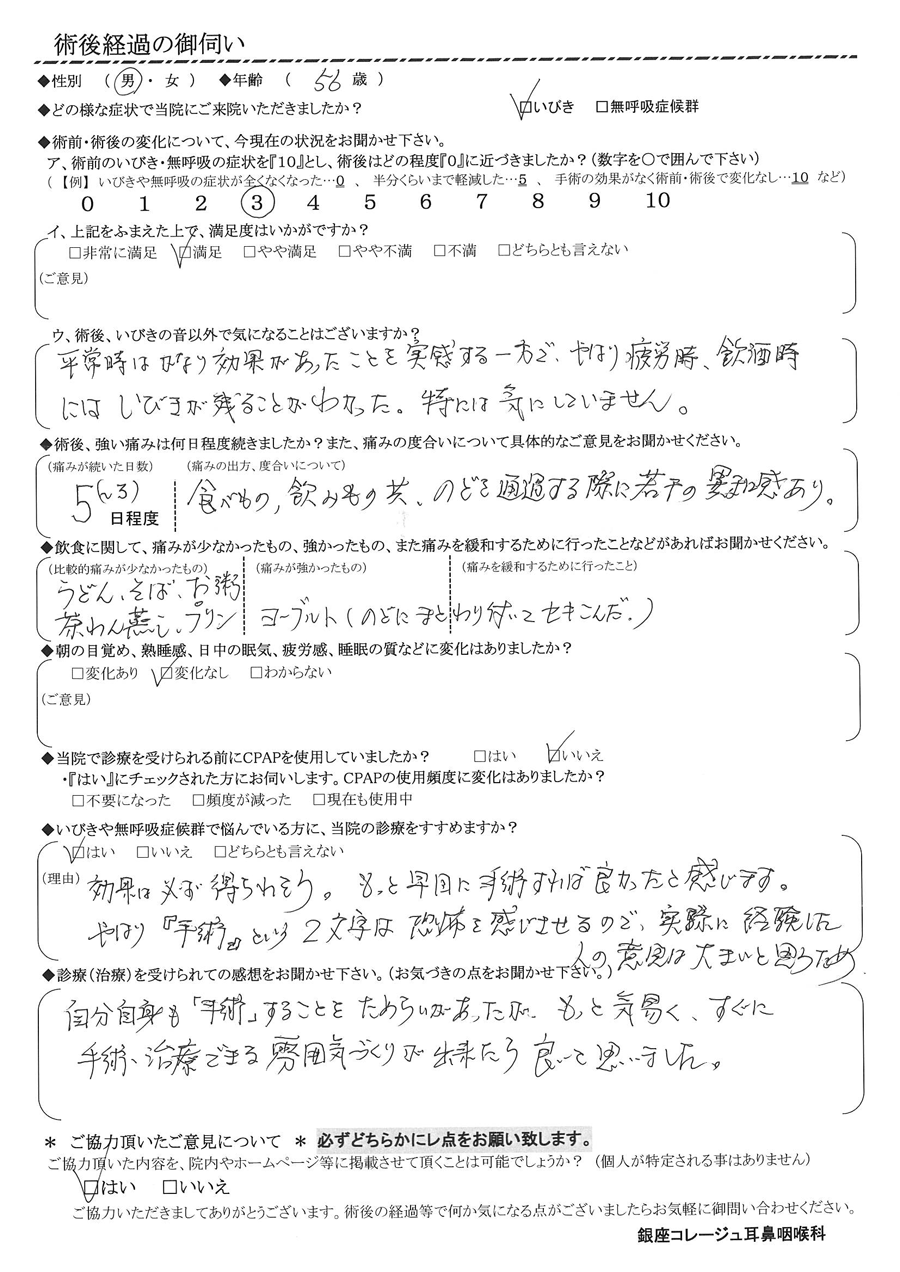 術後経過の御伺い
◆性別 ( 男・ 女 ) ◆年齢 ( 56 歳 )
◆どの様な症状で当院にご来院いただきましたか? ☑いびき □無呼吸症候群
◆術前・術後の変化について、今現在の状況をお聞かせ下さい。
ア、術前のいびき・無呼吸の症状を『10』とし、術後はどの程度『0』に近づきましたか?(数字を〇で囲んで下さい)
(【例】いびきや無呼吸の症状が全くなくなった…0 、 半分くらいまで軽減した…5 、 手術の効果がなく術前・術後で変化なし…10 など)
0 1 2 3 4 5 6 7 8 9 10
イ、上記をふまえた上で、満足度はいかがですか?
□非常に満足 ☑満足 □やや満足 □やや不満 □不満 □どちらとも言えない
(ご意見)
ウ、術後、いびきの音以外で気になることはございますか?
平常時はかなり効果があったことを実感する一方で、やはり疲労時、飲酒時
にはいびきが残ることがわかった。特には気にしていません。
◆術後、強い痛みは何日程度続きましたか?また、痛みの度合いについて具体的なご意見をお聞かせください。
(痛みが続いた日数) (痛みの出方、度合いについて)
5(~3) 日程度 食べもの, 飲みもの共、のどを通過する際に若干の異和感あり。
◆飲食に関して、痛みが少なかったもの、強かったもの、また痛みを緩和するために行ったことなどがあればお聞かせください。
(比較的痛みが少なかったもの) (痛みが強かったもの) (痛みを緩和するために行ったこと)
うどん、そば、お粥
茶わん蒸し、プリン ヨーグルト(のどにまとわり付いてセキこんだ。)
◆朝の目覚め、熟睡感、日中の眠気、疲労感、睡眠の質などに変化はありましたか?
□変化あり ☑変化なし □わからない
(ご意見)
◆当院で診療を受けられる前にCPAPを使用していましたか? □はい ☑いいえ
・『はい』にチェックされた方にお伺いします。CPAPの使用頻度に変化はありましたか?
□不要になった □頻度が減った □現在も使用中
◆いびきや無呼吸症候群で悩んでいる方に、当院の診療をすすめますか?
☑はい □いいえ □どちらとも言えない
(理由) 効果は必ず得られそう。もっと早目に手術すれば良かったと感じます。
やはり『手術』という2文字は恐怖を感じさせるので、実際に経験した
人の意見は大きいと思うため
◆診療(治療)を受けられての感想をお聞かせ下さい。(お気づきの点をお聞かせ下さい。)
自分自身も「手術」することをためらいがあったが、もっと気易く、すぐに
手術、治療できる雰囲気づくりが出来たら良いと思いました。
* ご協力頂いたご意見について * 必ずどちらかにレ点をお願い致します。
ご協力頂いた内容を、院内やホームページ等に掲載させて頂くことは可能でしょうか? (個人が特定される事はありません)
☑はい □いいえ
ご協力いただきましてありがとうございます。術後の経過等で何か気になる点がございましたらお気軽に御問い合わせください。
銀座コレージュ耳鼻咽喉科